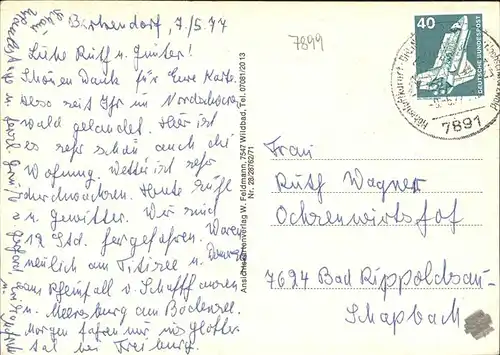 Berkendorf, 7./5.77
Liebe Ruth u. Günter!
Schönen Dank für Eure Karte.
also seit Ihr im Nordschwarz
wald gelandet. Hier ist
es sehr schön auch die
Wohnung. Wetter ist sehr
durchwachsen. Heute Kühl
u. Gewitter. Wir sind
12 Std. hergefahren. Waren
neulich am Titisee u. Donau
am Rheinfall v. Schaffhausen
u. Meersburg am Bodensee.
Morgen fahren wir ins Glotter
tal bei Freiburg.
7899
40
DEUTSCHE BUNDESPOST
7891
Frau
Ruth Wagner
Ochsenwirtshof
7624 Bad Rippoldsau-
Schapbach
Ansichtskartenverlag W. Feldmann, 7547 Wildbad, Tel. 07081/2013
Nr. 28/28762/71